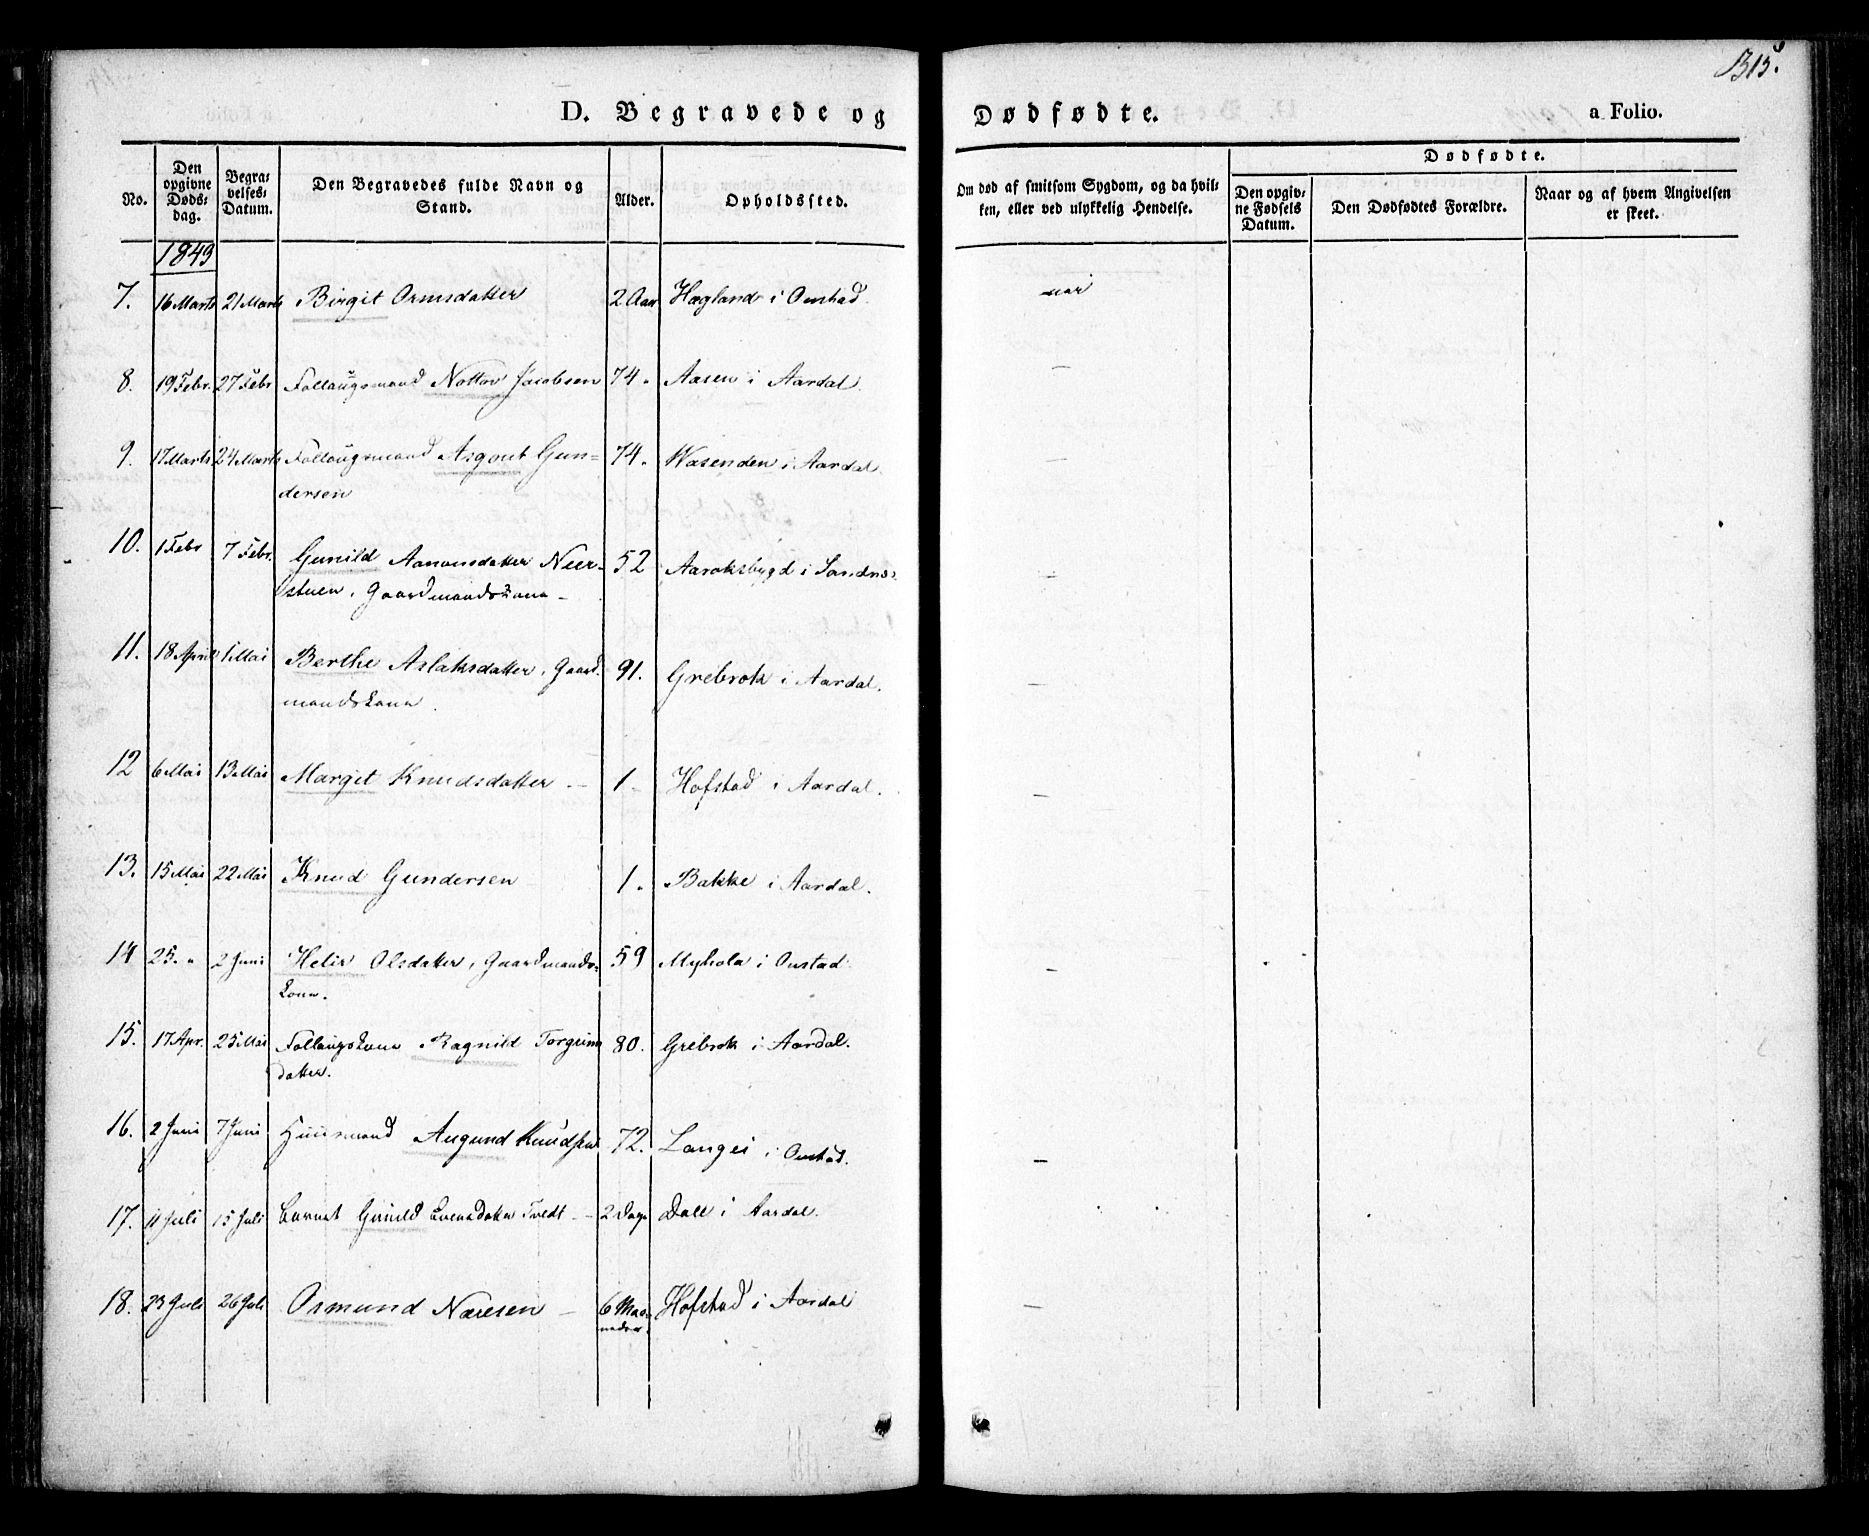 315.
D. Begravede og Dødfødte. a Folio.
No.
Den opgivne Døds-dag.
Begra-velses-Datum.
Den Begravedes fulde Navn og Stand.
Alder.
Opholdssted.
Om død af smitsom Sygdom, og da hvil-ken, eller ved ulykkelig Hendelse.
Dødfødte.
Den opgiv-ne Fødsels Datum.
Den Dødfødtes Forældre.
Naar og af hvem Angivelsen er skeet.
1849
7. 16 Marts 21 Marts Birgit Ormsdatter 2 Aar Hægland i Omstad
8. 19 Febr. 27 Febr Follaugsmand Nottov Jacobsen 74. Aasen i Aardal.
9. 17 Marts 24 Marts Follaugsmand Asgout Gun= 74. Wasenden i Aardal
dersen
10. 1 Febr 7 Febr. Gunild Aanonsdatter Neer- 52 Aaraksbygd i Sandnes.
stuen, Gaardmandskone -
11. 18 April 1 Mai Berthe Aslaksdatter, Gaard 91. Grebrok i Aardal.
mandskone.
12 6 Mai 13 Mai Margit Knudsdatter - 1. Hofstad i Aardal.
13. 15 Mai 22 Mai Knud Gundersen 1. Bakke i Aardal.
14 25. " 2 Juni Helie Olsdatter, Gaardmands- 59 Myhola i Omstad
kone.
15. 17 Apr. 25 Mai Follaugskone Ragnild Torgrims 80. Grebrok i Aardal.
datter.
16. 2 Juni 7 Juni Huusmand Augund Knudsen 72. Langei i Omstad.
17. 11 Juli 15 Juli Barnet Gunild Evensdatter Tvedt - 2 Dage Dale i Aardal.
18. 23 Juli 26 Juli Osmund Næresen - 6 Maa= Hofstad i Aardal
neder.